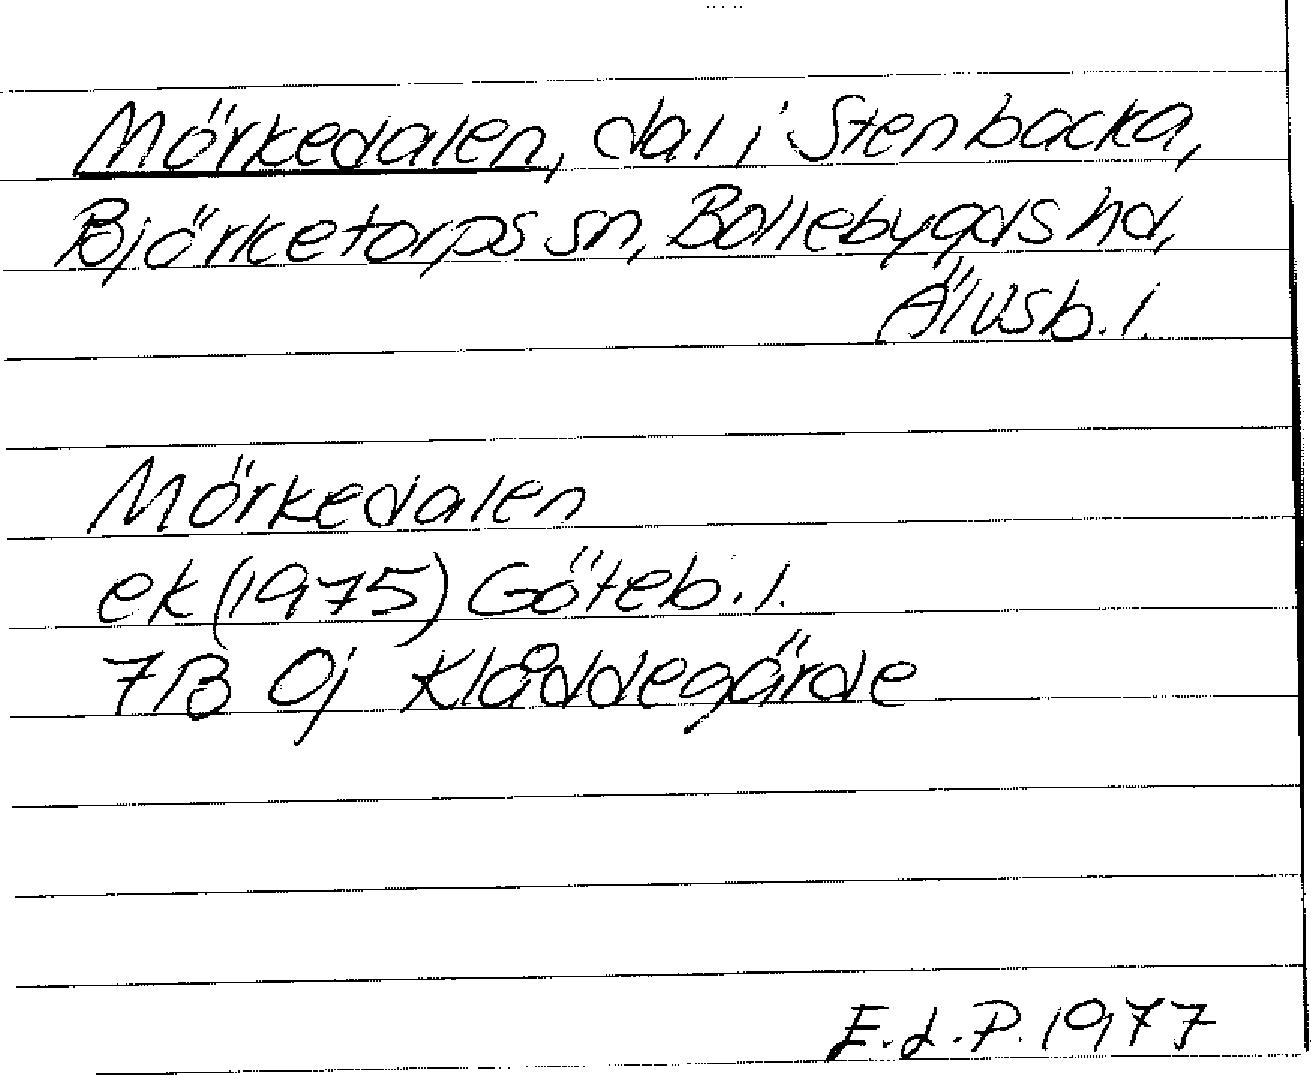 Mörkedalen, dal i Stenbacka,
Björketorps sn, Bollebygds hd,
Älvsb. l.
Mörkedalen
ek (1975) Göteb. l.
7B 0j Klåddegärde
E.L.P. 1977